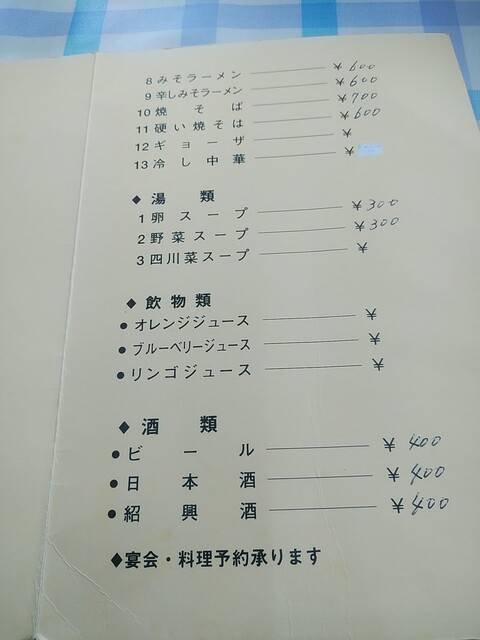 8 みそラーメン ¥ 600
9 辛しみそラーメン ¥ 600
10 焼そば ¥ 700
11 硬い焼そば ¥ 600
12 ギョーザ ¥
13 冷し中華 ¥
◆ 湯類
1 卵スープ ¥ 300
2 野菜スープ ¥ 300
3 四川菜スープ ¥
◆ 飲物類
● オレンジジュース ¥
● ブルーベリージュース ¥
● リンゴジュース ¥
◆ 酒類
● ビール ¥ 400
● 日本酒 ¥ 400
● 紹興酒 ¥ 400
◆宴会・料理予約承ります